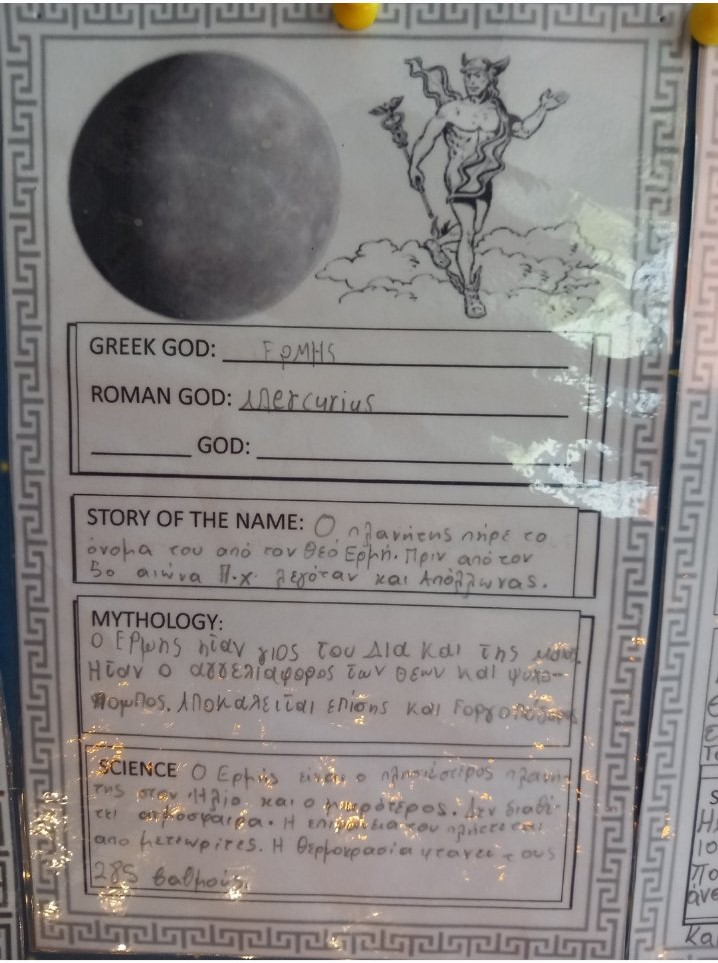 GREEK GOD: ΕρΜΗς
ROMAN GOD: Mercurius
GOD:
STORY OF THE NAME: Ο πλανήτης πήρε το
όνομα του από τον Θεό Ερμή. Πριν από τον
5ο αιώνα Π.χ. λεγόταν και Απόλλωνας.
MYTHOLOGY:
Ο Ερμης ήταν γιος του Δια και της
Ηταν ο αγγελιαφορος των θεων και ψυχο-
πομπος. Αποκαλειται επίσης και
SCIENCE Ο Ερμής είναι ο πλανή-
της στον Ήλιο και ο μικρότερος. Δεν διαθέ-
τει ατμοσφαιρα. Η επιφάνεια του πλήττεται
απο μετεωρίτες. Η θερμοκρασία φτανει τους
285 βαθμούς.